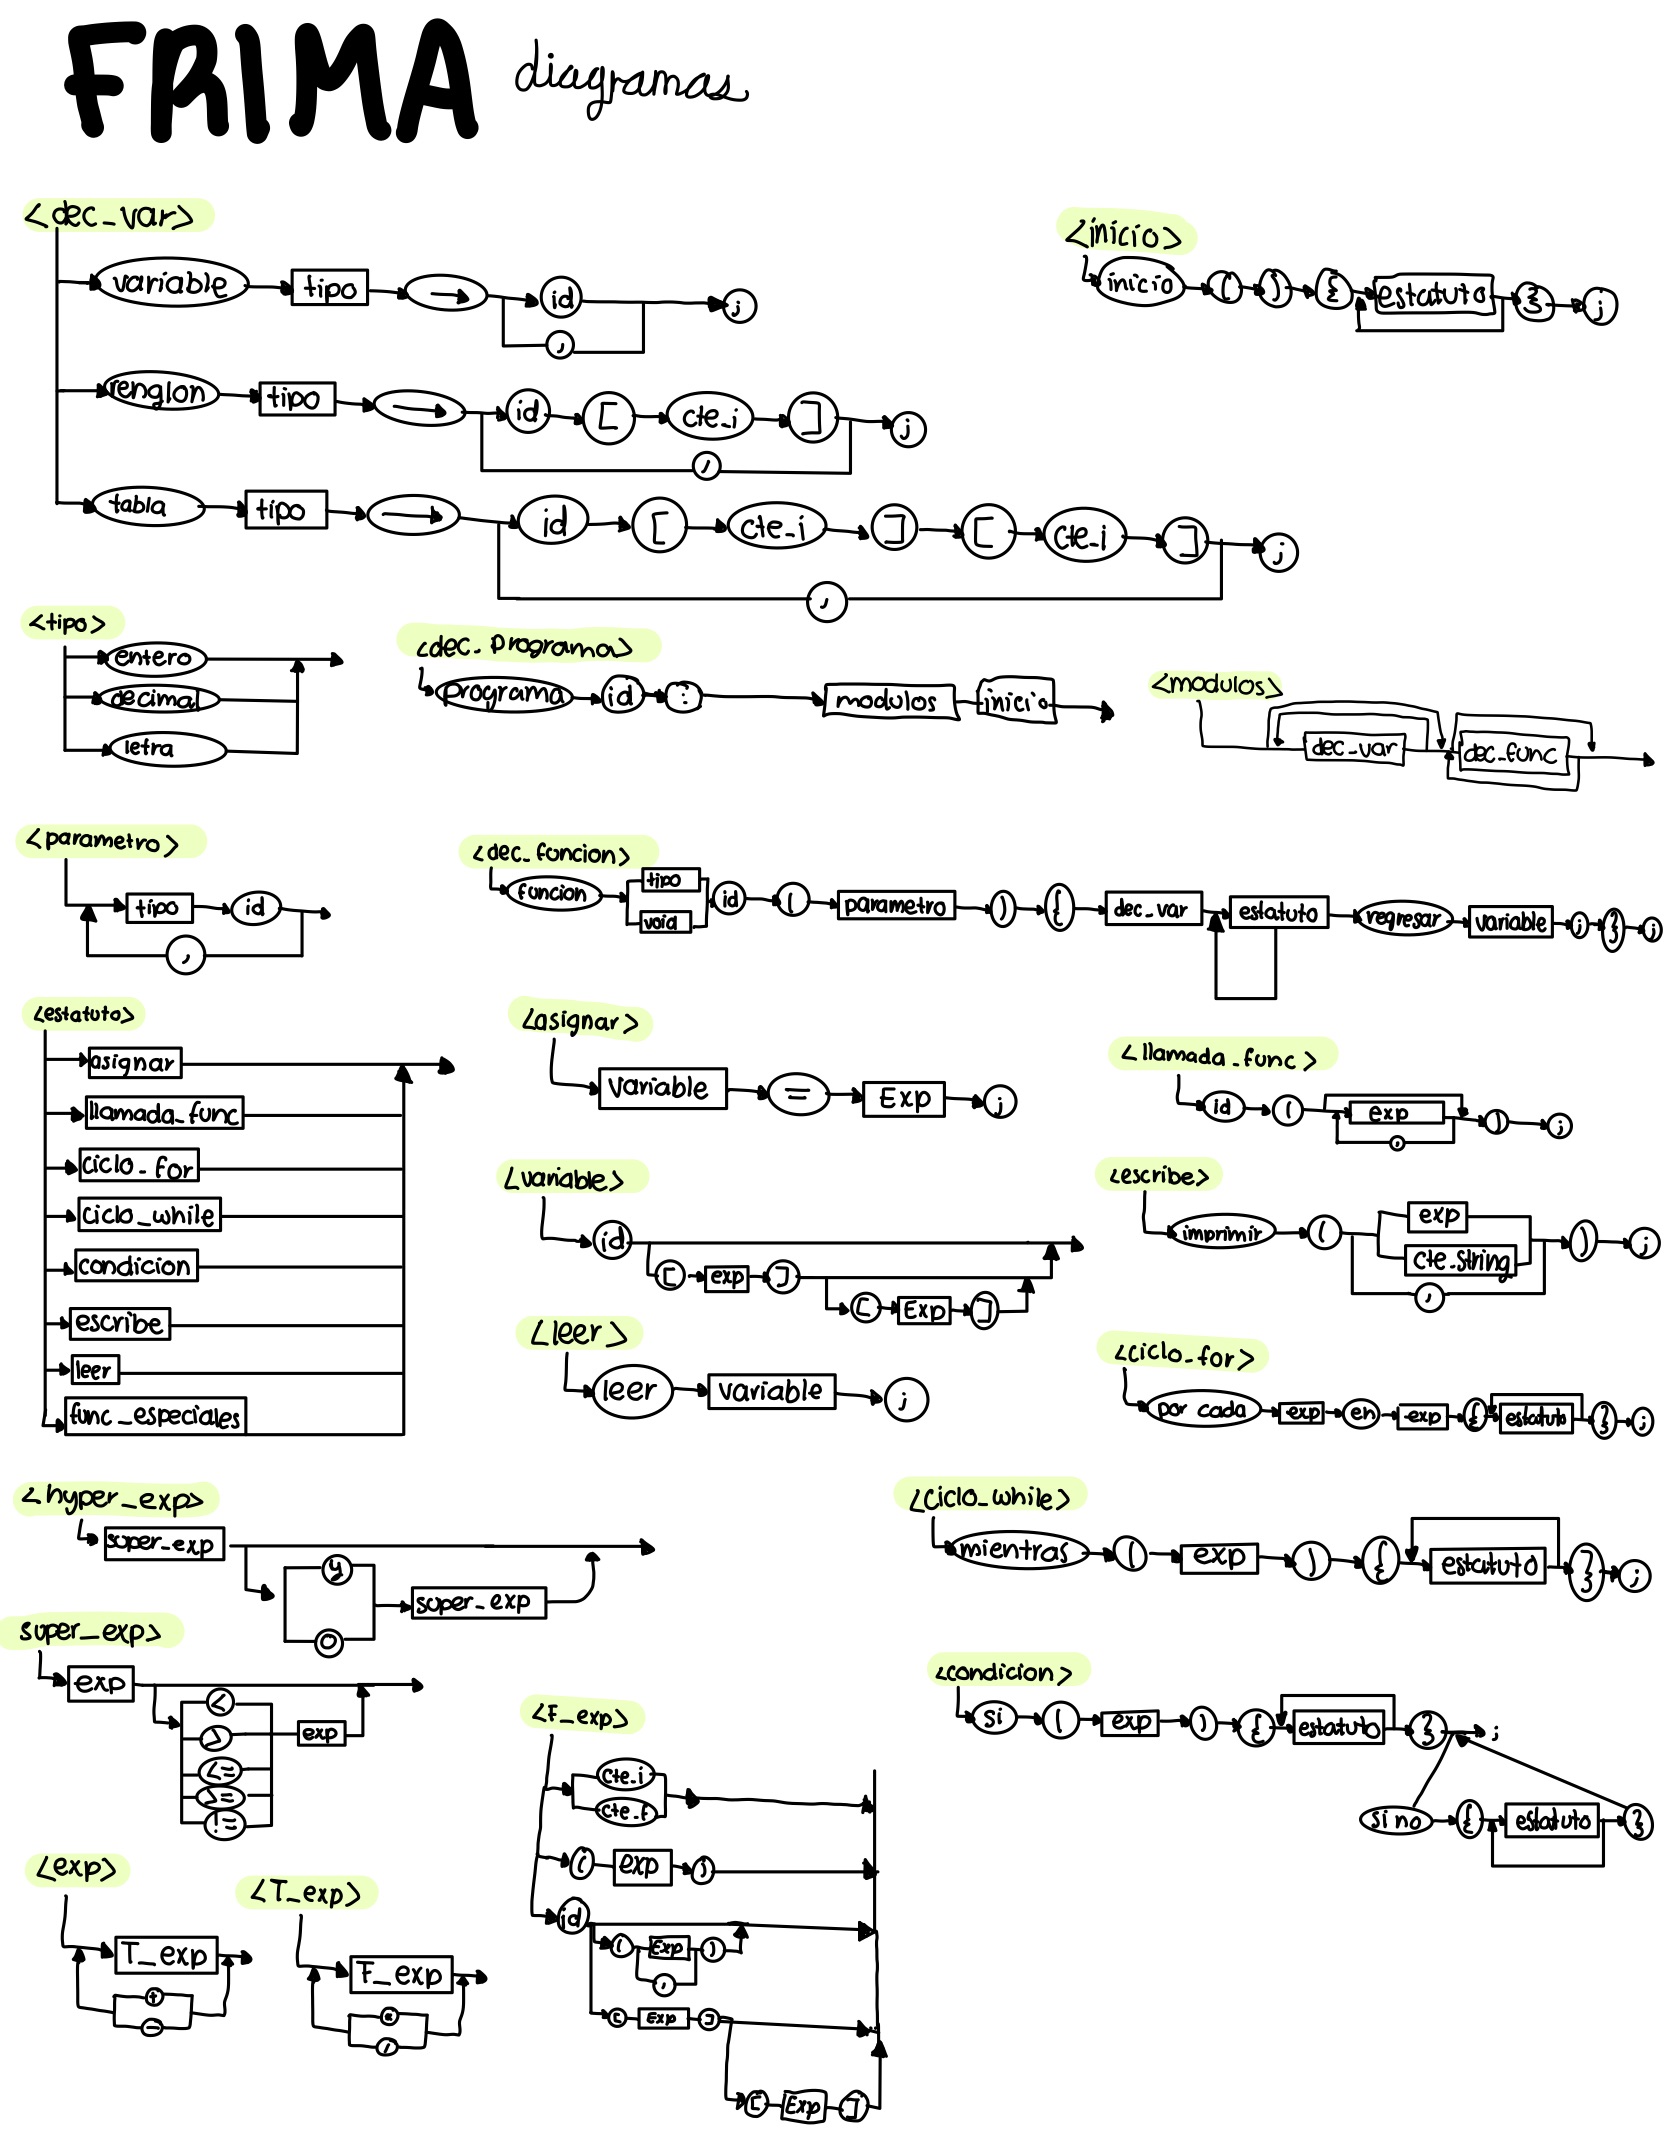 FRIMA diagramas
<dec_var>
variable tipo → id ;
,
renglon tipo → id [ cte_i ] ;
,
tabla tipo → id [ cte_i ] [ cte_i ] ;
,
<inicio>
inicio ( ) { estatuto } ;
<tipo>
entero
decimal
letra
<dec_programa>
programa id : modulos inicio
<modulos>
dec_var dec_func
<parametro>
tipo id
,
<dec_funcion>
funcion tipo id ( parametro ) { dec_var estatuto regresar variable ; } ;
void
<estatuto>
asignar
llamada_func
ciclo_for
ciclo_while
condicion
escribe
leer
func_especiales
<asignar>
variable = Exp ;
<llamada_func>
id ( exp ) ;
,
<variable>
id
[ exp ]
[ Exp ]
<escribe>
imprimir ( exp ) ;
cte.string
,
<leer>
leer variable ;
<ciclo_for>
por cada exp en exp { estatuto } ;
<hyper_exp>
super_exp
y
super_exp
o
<ciclo_while>
mientras ( exp ) { estatuto } ;
super_exp>
exp
<
> exp
<=
>=
!=
<condicion>
si ( exp ) { estatuto } ;
sino { estatuto }
<F_exp>
cte_i
cte_f
( exp )
id
( Exp )
,
[ Exp ]
[ Exp ]
<exp>
T_exp
+
-
<T_exp>
F_exp
*
/